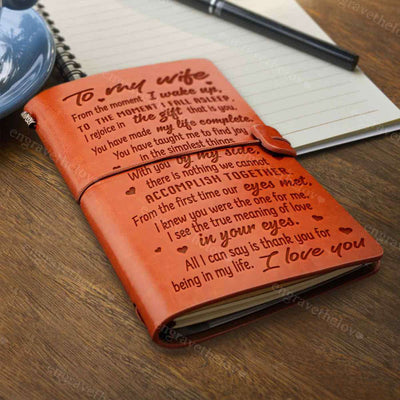 To my wife
From the moment I wake up,
TO THE MOMENT I FALL ASLEEP
I rejoice in the gift that is you,
You have made my life complete.
You have taught me to find joy
in the simplest things.
With you by my side,
there is nothing we cannot
ACCOMPLISH TOGETHER.
From the first time our eyes met,
I knew you were the one for me.
I see the true meaning of love
in your eyes.
All I can say is thank you for
being in my life. I love you
engravethelove